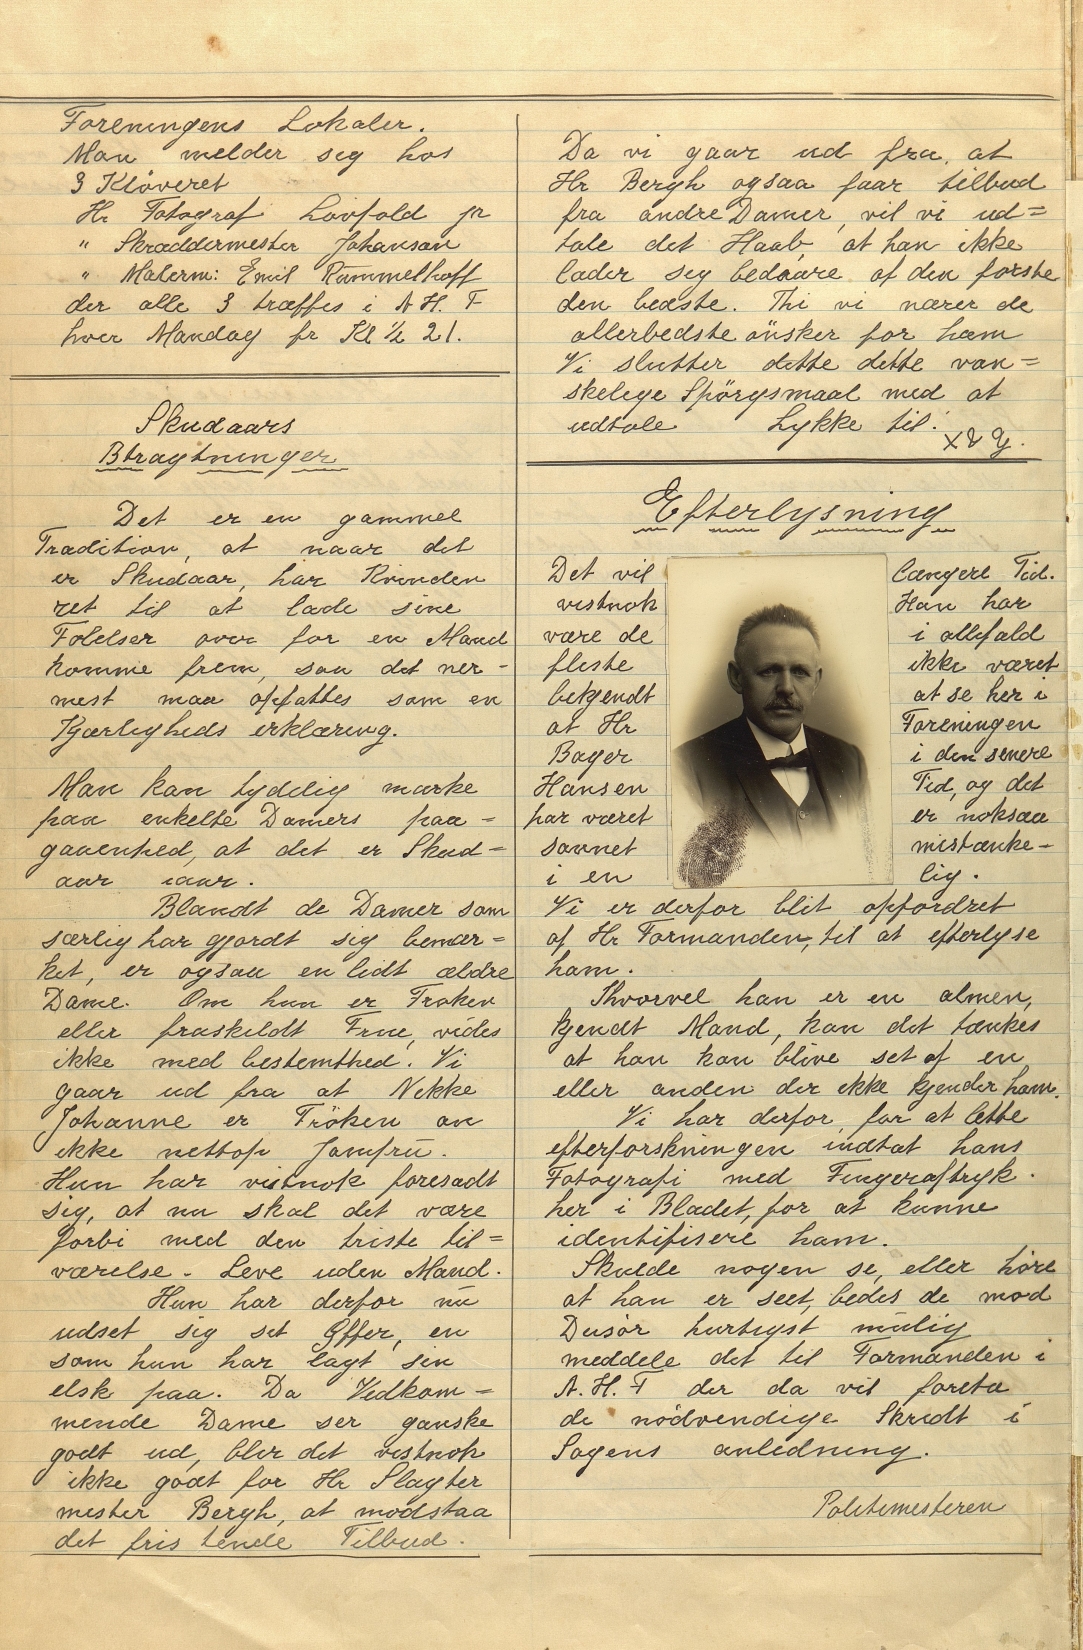 Foreningens Lokaler.
Man melder seg hos
3 Klöveret
Hr Fotograf Lövfold jr
" Skræddermester Johansan
" Malerm: Emil Rummelhoff
der alle 3 træffes i A. H. F
hver Mandag fr Kl ½ 21.
Skudaars
Btragtninger
Det er en gammel
Tradition, at naar det
er Skudaar, har Kvinden
ret til at lade sine
Følelser over for en Mand
komme frem, saa det ner-
mest maa opfattes som en
Kjærligheds erklæring.
Man kan tydelig marke
paa enkelte Damers paa-
gaaenhed, at det er Skud-
aar iaar.
Blandt de Damer som
særlig har gjordt sig bemær=
ket, er ogsaa en lidt ældre
Dame. Om hun er Frøken
eller fraskildt Frue, vides
ikke med bestemthed. Vi
gaar ud fra at Nekke
Johanne er Fröken om
ikke nettop Jomfru.
Hun har vistnok foresadt
sig, at nu skal det være
forbi med den triste til=
værelse - Leve uden Mand.
Hun har derfor nu
udset sig set Offer, en
som hun har lagt sin
elsk paa. Da Vedkom-
mende Dame ser ganske
godt ud, blir det vistnok
ikke godt for Hr Slagter
mester Bergh, at modstaa
det fris tende Tilbud.
Da vi gaar ud fra, at
Hr Bergh ogsaa faar tilbud
fra andre Damer, vil vi ud=
tale det Haab, at han ikke
lader seg bedaare af den første
den bedste. Thi vi nærer de
allerbedste önsker for ham
Vi slutter dette dette van=
skelege Spörgsmaal med at
udtale Lykke til!
X & Y.
Efterlysning
Det vil
vistnok
være de
fleste
bekjendt
at Hr
Bager
Hansen
har været
savnet
i en
længere Tid.
Han har
i allefald
ikke været
at se her i
Foreningen
i den senere
Tid, og det
er noksaa
mistænke-
lig.
Vi er derfor blit opfordret
af Hr Formanden, til at efterlyse
ham.
Ihvorvel han er en almen,
kjendt Mand, kan det tænkes
at han kan blive set af en
eller anden der ikke kjender ham.
Vi har derfor, for at lette
efterforskningen indtat hans
Fotografi med Fingeraftryk.
her i Bladet, for at kunne
identifisere ham.
Skulde nogen se, eller höre
at han er seet, bedes de mod
Dusør hurtigst mulig
meddele det til Formanden i
A. H. F der da vil foreta
de nödvendige Skridt i
Sagens anledning.
Politimesteren